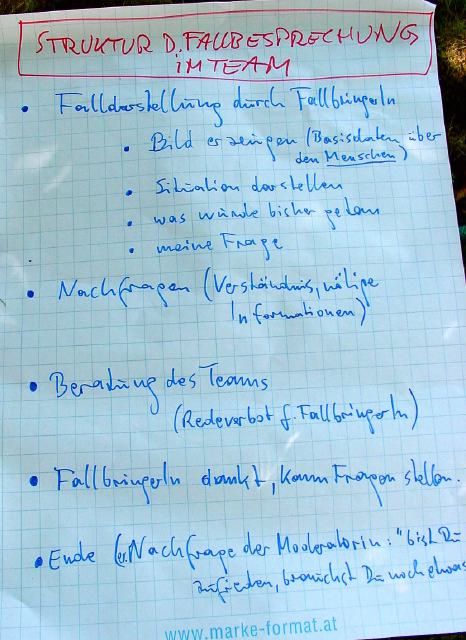 STRUKTUR D. FALLBESPRECHUNG
IM TEAM
• Falldarstellung durch FallbringerIn
• Bild erzeugen (Basisdaten über
den Menschen)
• Situation darstellen
• was wurde bisher getan
• meine Frage
• Nachfragen (Verständnis, nötige
Informationen)
• Beratung des Teams
(Redeverbot f. FallbringerIn)
• FallbringerIn dankt, kann Fragen stellen.
• Ende Nachfrage der Moderatorin: "bist Du
zufrieden, brauchst Du noch etwas
www.marke-format.at